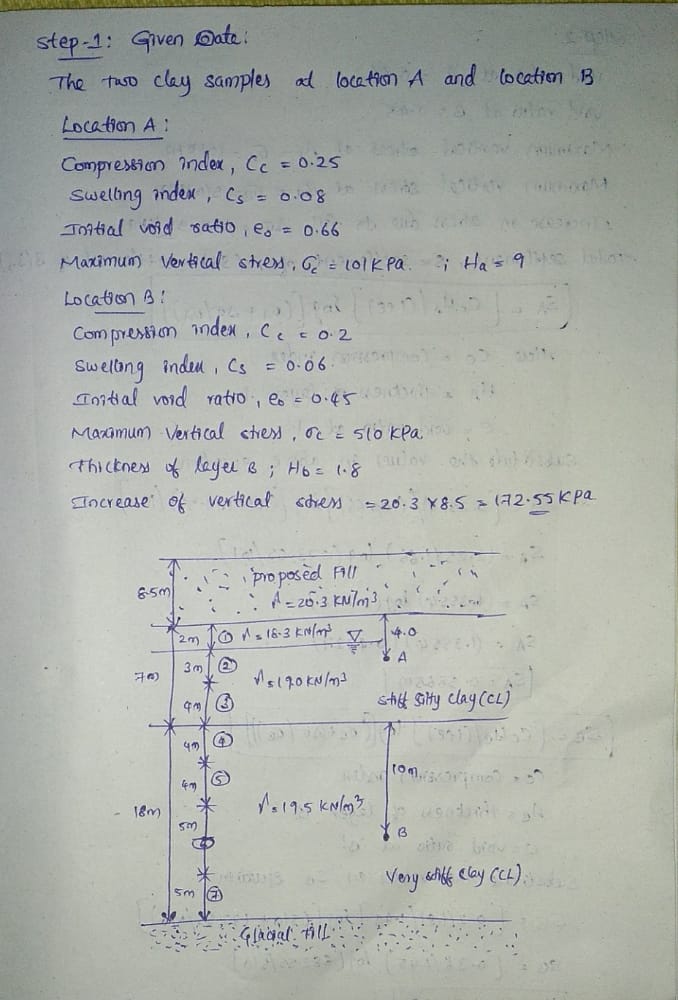 Step-1: Given Date:
The two clay samples at location A and location B
Location A:
Compression index, Cc = 0.25
Swelling index, Cs = 0.08
Initial void ratio, e₀ = 0.66
Maximum Vertical stress, σc' = 101 KPa. ; Ha = 9
Location B:
Compression index, Cc = 0.2
Swelling index, Cs = 0.06
Initial void ratio, e₀ = 0.45
Maximum Vertical stress, σc = 510 KPa
Thickness of layer B; Hb = 1.8
Increase of vertical stress = 20.3 x 8.5 = 172.55 KPa
8.5m
proposed Fill
γ = 20.3 KN/m³
2m
① γ = 18.3 KN/m³
4.0
A
7m
3m
②
γ = 19.0 KN/m³
4m
③
stiff silty clay (CL)
4m
④
4m
⑤
10m
18m
γ = 19.5 KN/m³
5m
⑥
B
Very stiff clay (CL)
5m
⑦
Glacial till